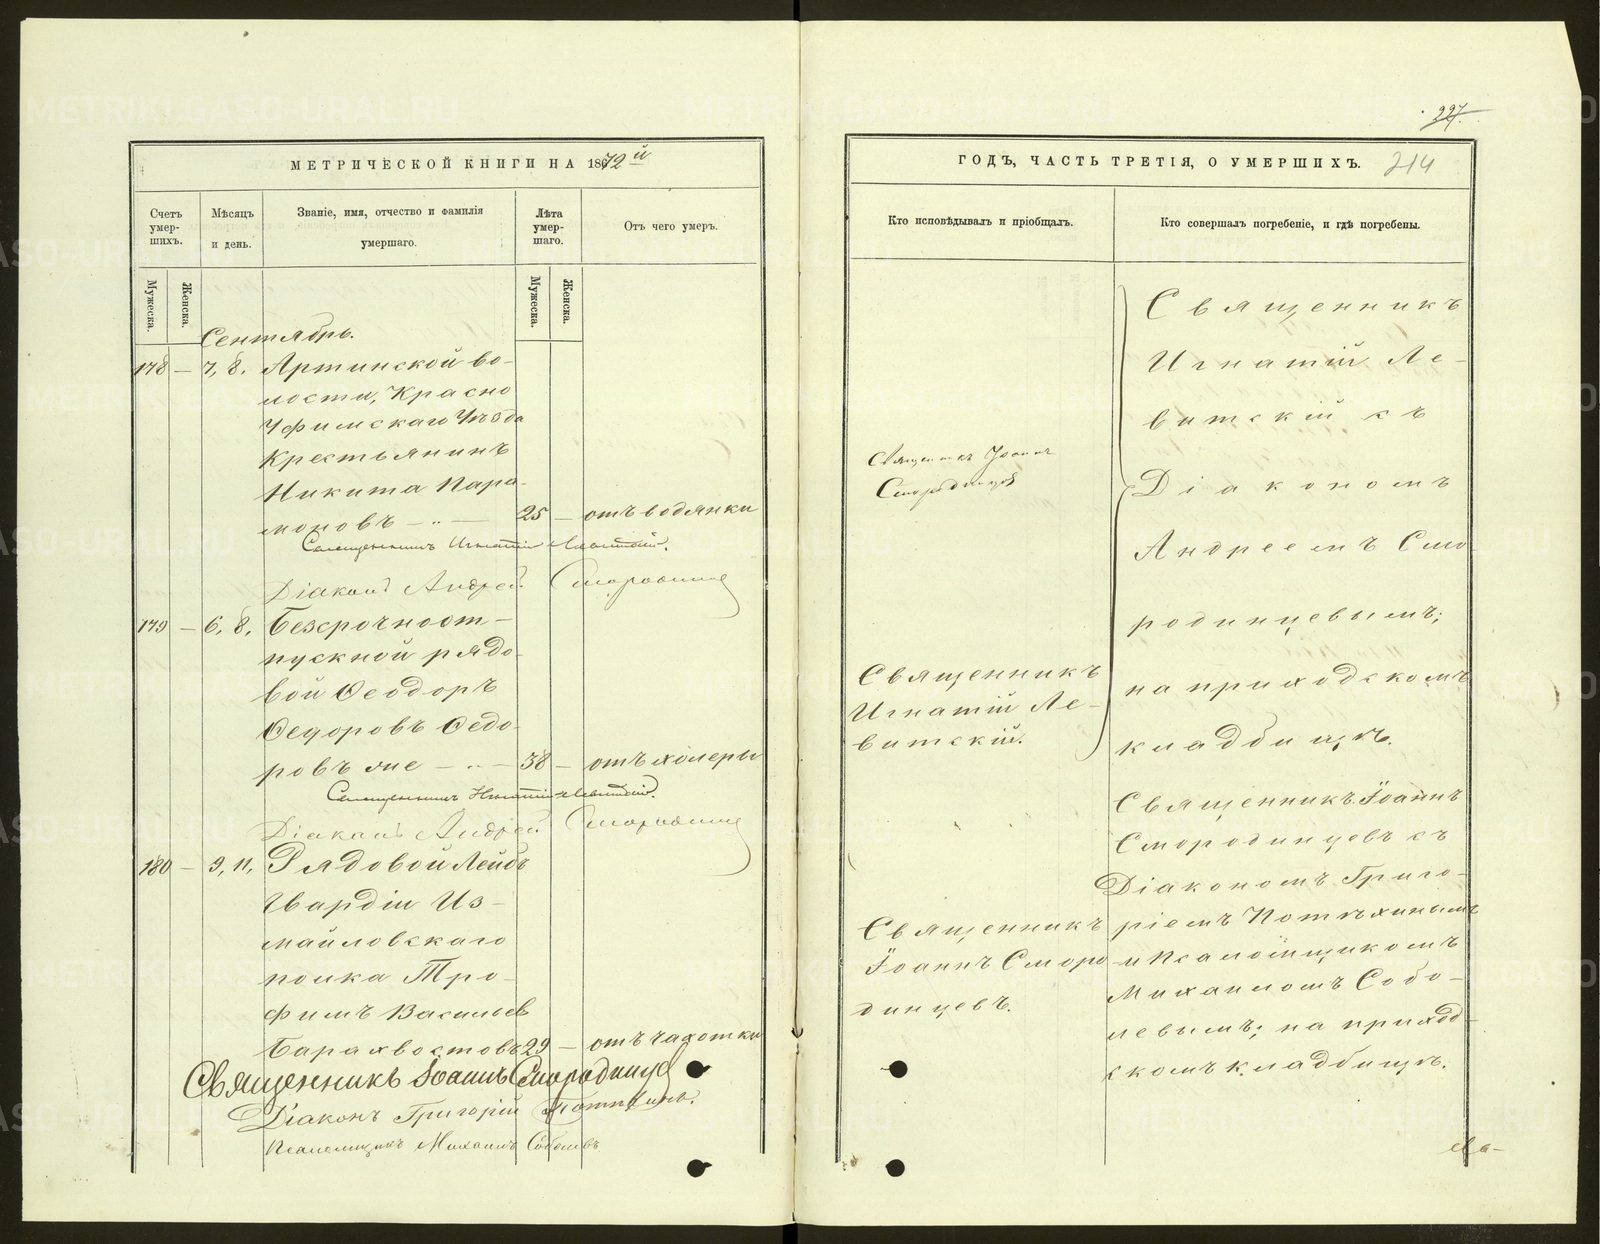 227.
МЕТРИЧЕСКОЙ КНИГИ НА 1872й
Счетъ умер-шихъ.
Мужеска.
Женска.
Мѣсяцъ и день.
Званіе, имя, отчество и фамилія умершаго.
Лѣта умер-шаго.
Мужеска.
Женска.
Отъ чего умеръ.
Сентябрь.
178 — 7, 8. Артинской во-
лости, Красно
Уфимскаго Уѣзда
Крестьянинъ
Никита Пара-
моновъ — „ — 25 — отъ водянки
Священникъ Игнатій Левитскій.
Діаконъ Андрей Смородинце
179 — 6, 8. Безсрочноот-
пускной рядо-
вой Ѳеодоръ
Ѳедоровъ Ѳедо-
ровъ же — „ — 38 — отъ холеры
Священникъ Игнатій Левитскій.
Діаконъ Андрей Смородинце
180 — 9, 11. Рядовой Лейбъ
Гвардіи Из-
майловскаго
полка Тро-
фимъ Васильев
Барахвостовъ 29 — отъ чахотки
Священникъ Іоаннъ Смородинце
Діаконъ Григорій Потѣхинъ.
Псаломщикъ Михаилъ Соболевъ
ГОДЪ, ЧАСТЬ ТРЕТІЯ, О УМЕРШИХЪ. 214
Кто исповѣдывалъ и пріобщалъ.
Кто совершалъ погребеніе, и гдѣ погребены.
Священникъ Іоаннъ
Смородинцов
Священникъ
Игнатій Ле-
витскій.
Священникъ
Іоаннъ Сморо
динцевъ.
Священникъ
Игнатій Ле-
витскій съ
Діакономъ
Андреемъ Смо
родинцевымъ;
на приходскомъ
кладбищѣ.
Священникъ Іоаннъ
Смородинцевъ съ
Діакономъ Григо-
ріемъ Потѣхинымъ
и Псаломщикомъ
Михаиломъ Собо-
левымъ; на приход-
скомъ кладбищѣ.